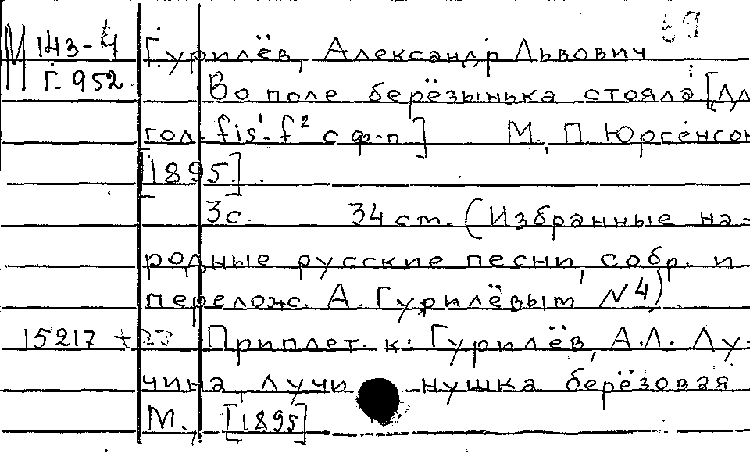 59
М 143-4 Гурилёв, Александр Львович
Г. 952 Во поле берёзынька стояла [Дл
гол. fis¹-f² с ф-п.] М., П. Юргенсон
[1895].
3 с. 34 см. (Избранные на-
родные русские песни, собр. и
перелож. А. Гурилёвым №4)
15217 Приплет. к: Гурилёв, А.Л. Лу-
чина, лучинушка берёзовая
М., [1895]